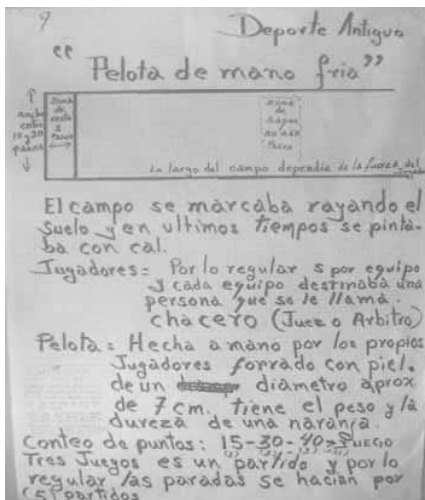 9
Deporte Antiguo
"Pelota de mano fria"
Ancho
entre
pasos
Zona
de
Pasos
Zona
de
Pasos
Lo largo del campo dependia de la fuerza del
El campo se marcaba rayando el
suelo y en ultimos tiempos se pinta-
ba con cal.
Jugadores = Por lo regular 5 por equipo
y cada equipo destinaba una
persona que se le llama
chacero (Juez o Arbitro)
Pelota = Hecha a mano por los propios
Jugadores forrado con piel.
de un diámetro aprox
de 7 cm. tiene el peso y la
dureza de una naranja.
Conteo de puntos: 15-30-40 > Juego
Tres Juegos es un partido y por lo
regular las paradas se hacían por
(5) partidos